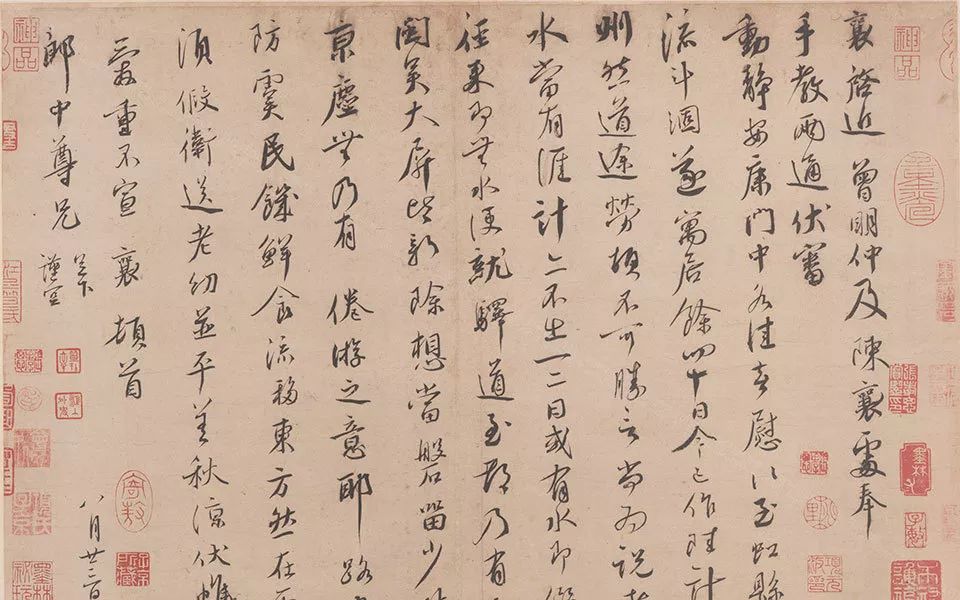 襄啓近曾明仲及陳襄處奉
手教兩通伏審
動靜安康門中各佳喜慰以至虹縣
流斗涸遂寓居餘四十日今已作陸計
州然道途勞頓不可勝言尚為說者
水當有涯計亦不出一二日或有水即
徑來即無水便就驛道至都乃有
閩吳大屏皆新除想當磐留少
京塵無乃有倦游之意耶路
防窶民饑鮮食流移東方然在
須假衛送老幼並平善秋涼伏惟
愛重不宣襄頓首
郎中尊兄
足下
謹空
八月廿二日
神品